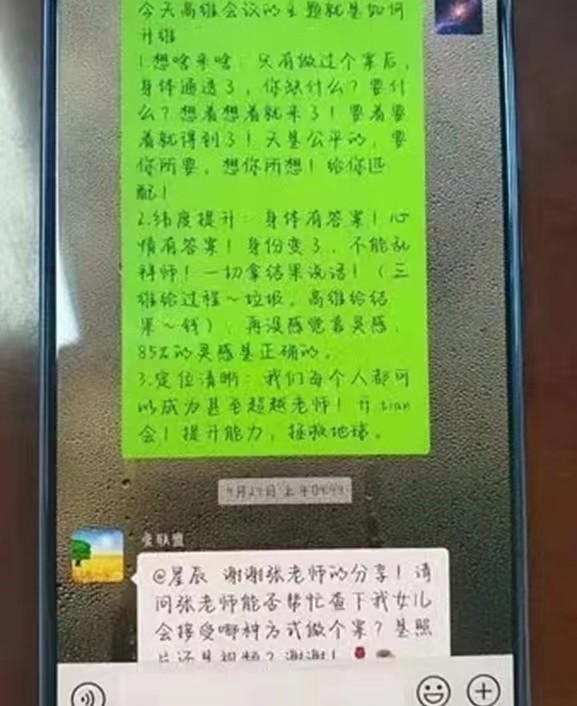 今天高维会议的主题就是如何
升维
1.想啥来啥：只有做过个案后，
身体通透了，你缺什么？要什
么？想着想着就来了！要着要
着就得到了！天是公平的，要
你所要，想你所想！给你匹
配！
2.纬度提升：身体有答案！心
情有答案！身份变了，不能乱
拜师！一切拿结果说话！（三
维给过程～垃圾，高维给结
果～钱），再没感觉靠灵感，
85%的灵感是正确的。
3.定位清晰：我们每个人都可
以成为甚至超越老师！开tian
会！提升能力，拯救地球。
@星辰 谢谢张老师的分享！请
问张老师能否帮忙查下我女儿
会接受哪种方式做个案？是照
片还是视频？谢谢！